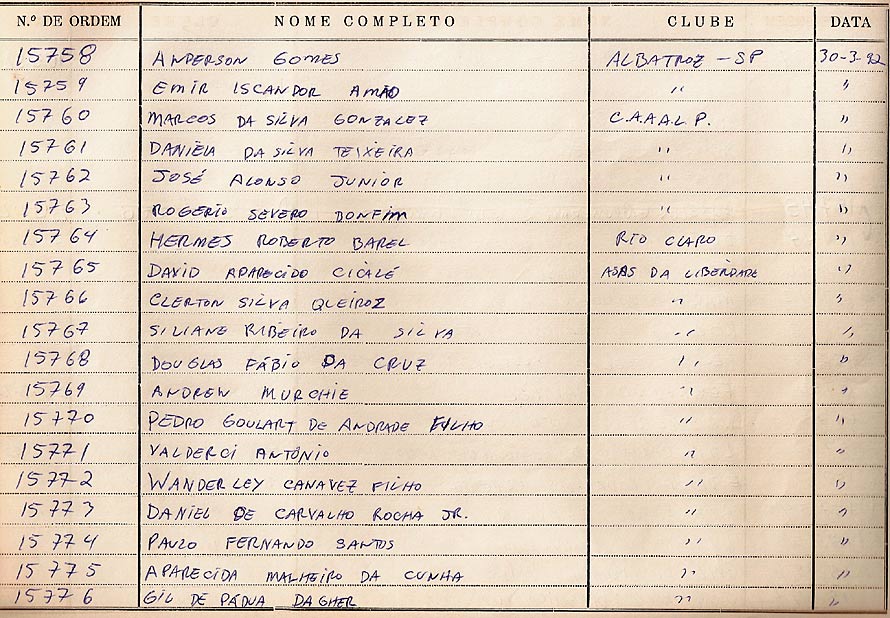 N.º DE ORDEM NOME COMPLETO CLUBE DATA
15758 ANDERSON GOMES ALBATROZ - SP 30-3-92
15759 EMIR ISCANDOR AMÃO " "
15760 MARCOS DA SILVA GONZALEZ C.A.A.A.L.P. "
15761 DANIELA DA SILVA TEIXEIRA " "
15762 JOSÉ ALONSO JUNIOR " "
15763 ROGERIO SEVERO DONFIM " "
15764 HERMES ROBERTO BAREL RIO CLARO "
15765 DAVID APARECIDO CICALÉ ASAS DA LIBERDADE "
15766 CLERTON SILVA QUEIROZ " "
15767 SILIANE RIBEIRO DA SILVA " "
15768 DOUGLAS FÁBIO DA CRUZ " "
15769 ANDREW MURCHIE " "
15770 PEDRO GOULART DE ANDRADE FILHO " "
15771 VALDERCI ANTÔNIO " "
15772 WANDERLEY CANAVEZ FILHO " "
15773 DANIEL DE CARVALHO ROCHA JR. " "
15774 PAULO FERNANDO SANTOS " "
15775 APARECIDA MALHEIRO DA CUNHA " "
15776 GIL DE PÁDUA DAGHER " "